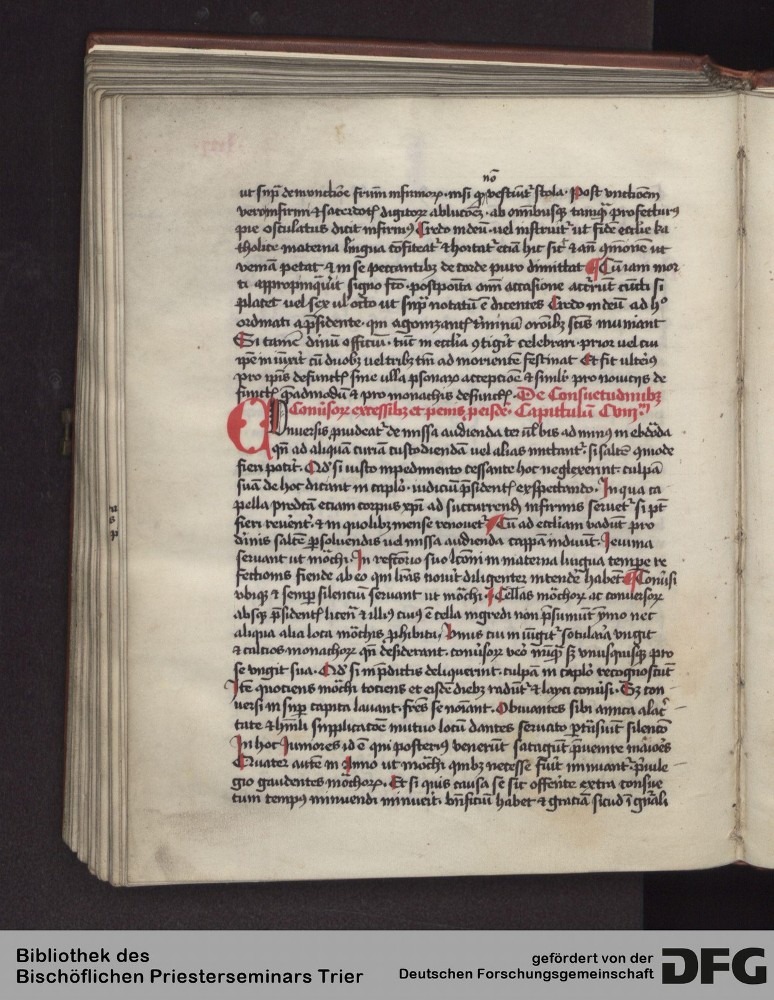 nō
ut sup̄ de inunctiōe frūm infirmoꝝ · nisi qꝫ vestiūt stola · Post unctionem
vero infirmi ⁊ sacerdotꝭ digitoꝝ ablucōēs · ab omībusqꝫ tamqᷓ ꝓfecturꝰ
pie osculatus dicit infirmꝰ Credo in deū · uel instruit̉ ut fidē ecclīe ka
tholice materna lingua cōfiteat̉ ⁊ hortat̉ eciā hic sic̄ ⁊ añ ut
veniā petat ⁊ in se peccantibꝫ de corde puro dimittat ¶ Cū iam mor
ti appropinquūit signo fc̄o · postposita omī occasione accūrūt cūcti si
placet uel sex uł octo ut sup̄ notatū ē dicentes Credo in deū ad
ordinati a p̄sidente · t̉minū oroībꝫ suis muniant
Si tamē diuinū officiū · tūc in ecclīa ꝯtigit̉ celebrari · prior uel cui
ip̄e iniūxit̉ cū duobꝫ uel tribꝫ tm̄ ad morientē festinat Et fit ulterꝰ
pro ip̄is defunctꝭ sine ulla ꝑsonaꝝ acceptiōe ⁊ simili · pro nouicijs de
functꝭ qᷓadmodū ⁊ pro monachis defunctꝭ · De Consuetudinibꝫ
Conūsoꝝ excessibꝫ et penis eisdē · Capitulū
Vniuersis ꝓuideat̉ de missa audienda ter uł bis ad minꝰ in ebdōda
qn̄ ad aliquā curiā custodiendā uel alias mittant̉ · si saltē qͦmodo
fieri potit̉ · Qd̓ si iusto inpedimento cessante hoc neglexerint · culpā
suā de hoc dicant in caplo · iudiciū p̄sidentꝭ exspectando · In qua ca
pella p̄dcām etiam corpus xp̄i ad succurrendū infirmis seruet̉ si pt̄
fieri reuēnt̉ · ⁊ in quolibꝫ mense renouet̉ Cū ad eccliam vadūt pro
diuinis saltē ꝑsoluendis uel missa audienda cappā induūt · Ieiunia
seruant ut mōchi · In refc̄orio suo lc̄ōni in materna lingua tempore re
fectionis fiende ab eo qui lrās nouit diligenter intende habēt ¶ Conūsi
vbiqꝫ ⁊ semp silenciū seruant ut mōchi Cellas mōchoꝝ ac conuersoꝝ
absqꝫ p̄sidentꝭ licen̄ ⁊ illiꝰ cuiꝰ ē cella ingredi non p̄sumūt ymo nec
aliqua alia loca mōchis ꝓhibita · Vnus cui iniūgit̉ sotularia vngit
⁊ calcios monachoꝝ qn̄ desiderant · conūsoꝝ vō · sꝫ vnusquisqꝫ ꝓto
se vngit sua · Qd̓ si in p̄dictis deliquerint · culpā in caplo recognoscūt
Itē quociens mōchi tociens et eisdē diebꝫ radūt̉ ⁊ layci conūsi · Et con
uersi insup̄ capita lauant · frēs se noīant · Obuiantes sibi amica alac̉
tate ⁊ hūili supplicatōe mutuo locū dantes seruato ꝑt̉nsiūt silencō
In hoc Iuniores id ē qui posteriꝰ venerūt satagūt p̄uenire maiōēs
Quater autē in Anno ut mōchi quibꝫ necesse fūit minuant̉ · p̄iuile
gio gaudentes mōchoꝝ · Et si quis causa se sic offerēte extra consue
tum tempꝰ minuendi minuerit · bn̄ficiū habet ⁊ graciā sicud ī gn̄ali
Bibliothek des
Bischöflichen Priesterseminars Trier
gefördert von der
Deutschen Forschungsgemeinschaft
DFG